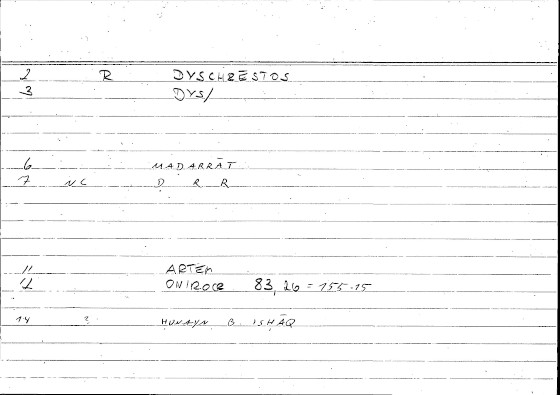 2 R DYSCHRĒSTOS
3 DYS/
6 MADARRĀT
7 NC D R R
11 ARTEM
12 ONIROCR 83,26 = 155-15
14 2 ḤUNAYN B. ISḤĀQ